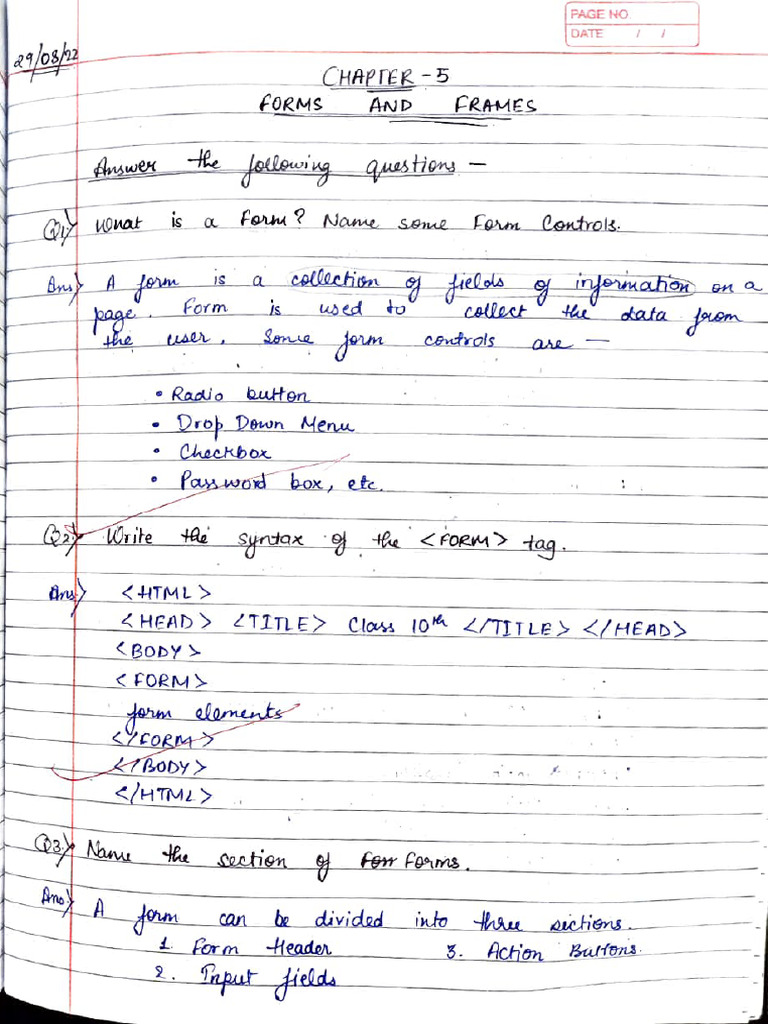 PAGE NO.
DATE / /
29/08/22
CHAPTER - 5
FORMS AND FRAMES
Answer the following questions —
Q1) What is a Form? Name some Form Controls.
Ans) A form is a collection of fields of information on a
page. Form is used to collect the data from
the user. Some form controls are —
• Radio button
• Drop Down Menu
• Checkbox
• Password box, etc.
Q2) Write the syntax of the <FORM> tag.
Ans) <HTML>
<HEAD> <TITLE> Class 10th </TITLE> </HEAD>
<BODY>
<FORM>
form elements
</FORM>
</BODY>
</HTML>
Q3) Name the section of Forms.
Ans) A form can be divided into three sections.
1. Form Header 3. Action Buttons.
2. Input fields